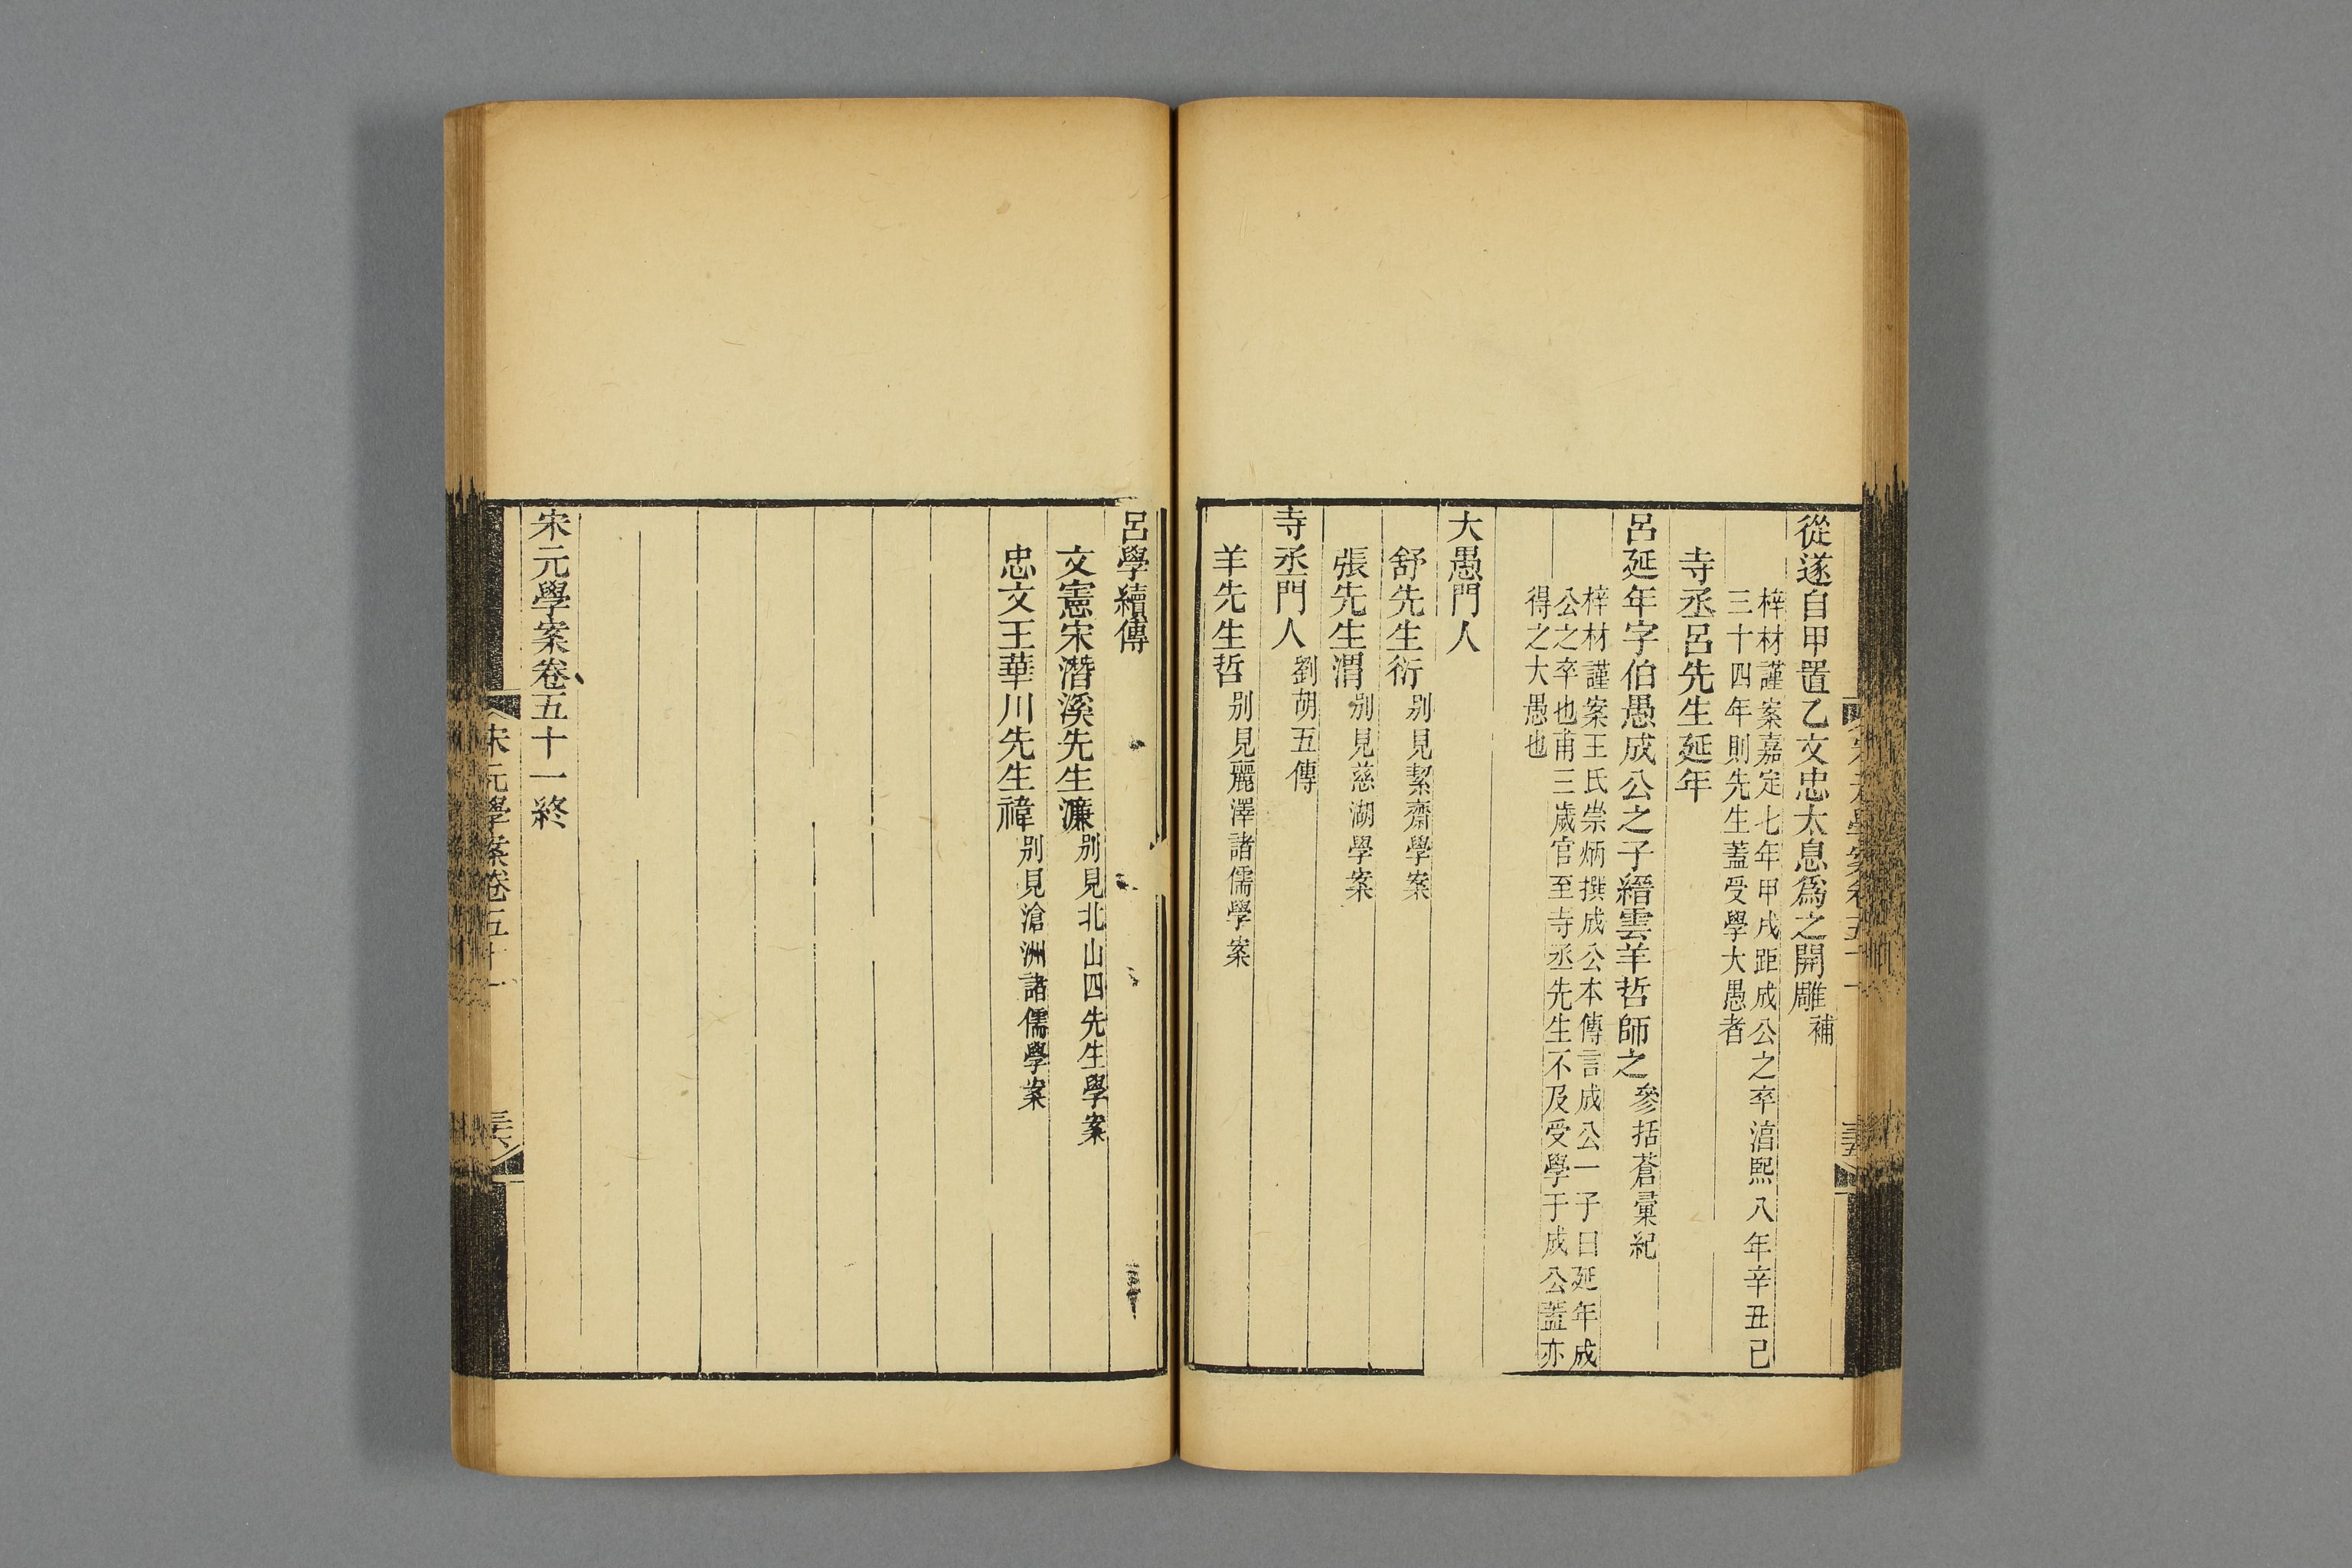 從遂自甲置乙文忠太息爲之開雕補
梓材謹案嘉定七年甲戌距成公之卒淳熙八年辛丑已
三十四年則先生蓋受學大愚者
寺丞呂先生延年
呂延年字伯愚成公之子縉雲羊哲師之參括蒼彙紀
梓材謹案王氏崇炳撰成公本傳言成公一子曰延年成
公之卒也甫三歲官至寺丞先生不及受學于成公蓋亦
得之大愚也
大愚門人
舒先生衍別見絜齋學案
張先生渭別見慈湖學案
寺丞門人劉胡五傳
羊先生哲別見麗澤諸儒學案
呂學續傳
文憲宋潛溪先生濂別見北山四先生學案
忠文王華川先生禕別見滄洲諸儒學案
宋元學案卷五十一終
宋元學案卷五十一
三六